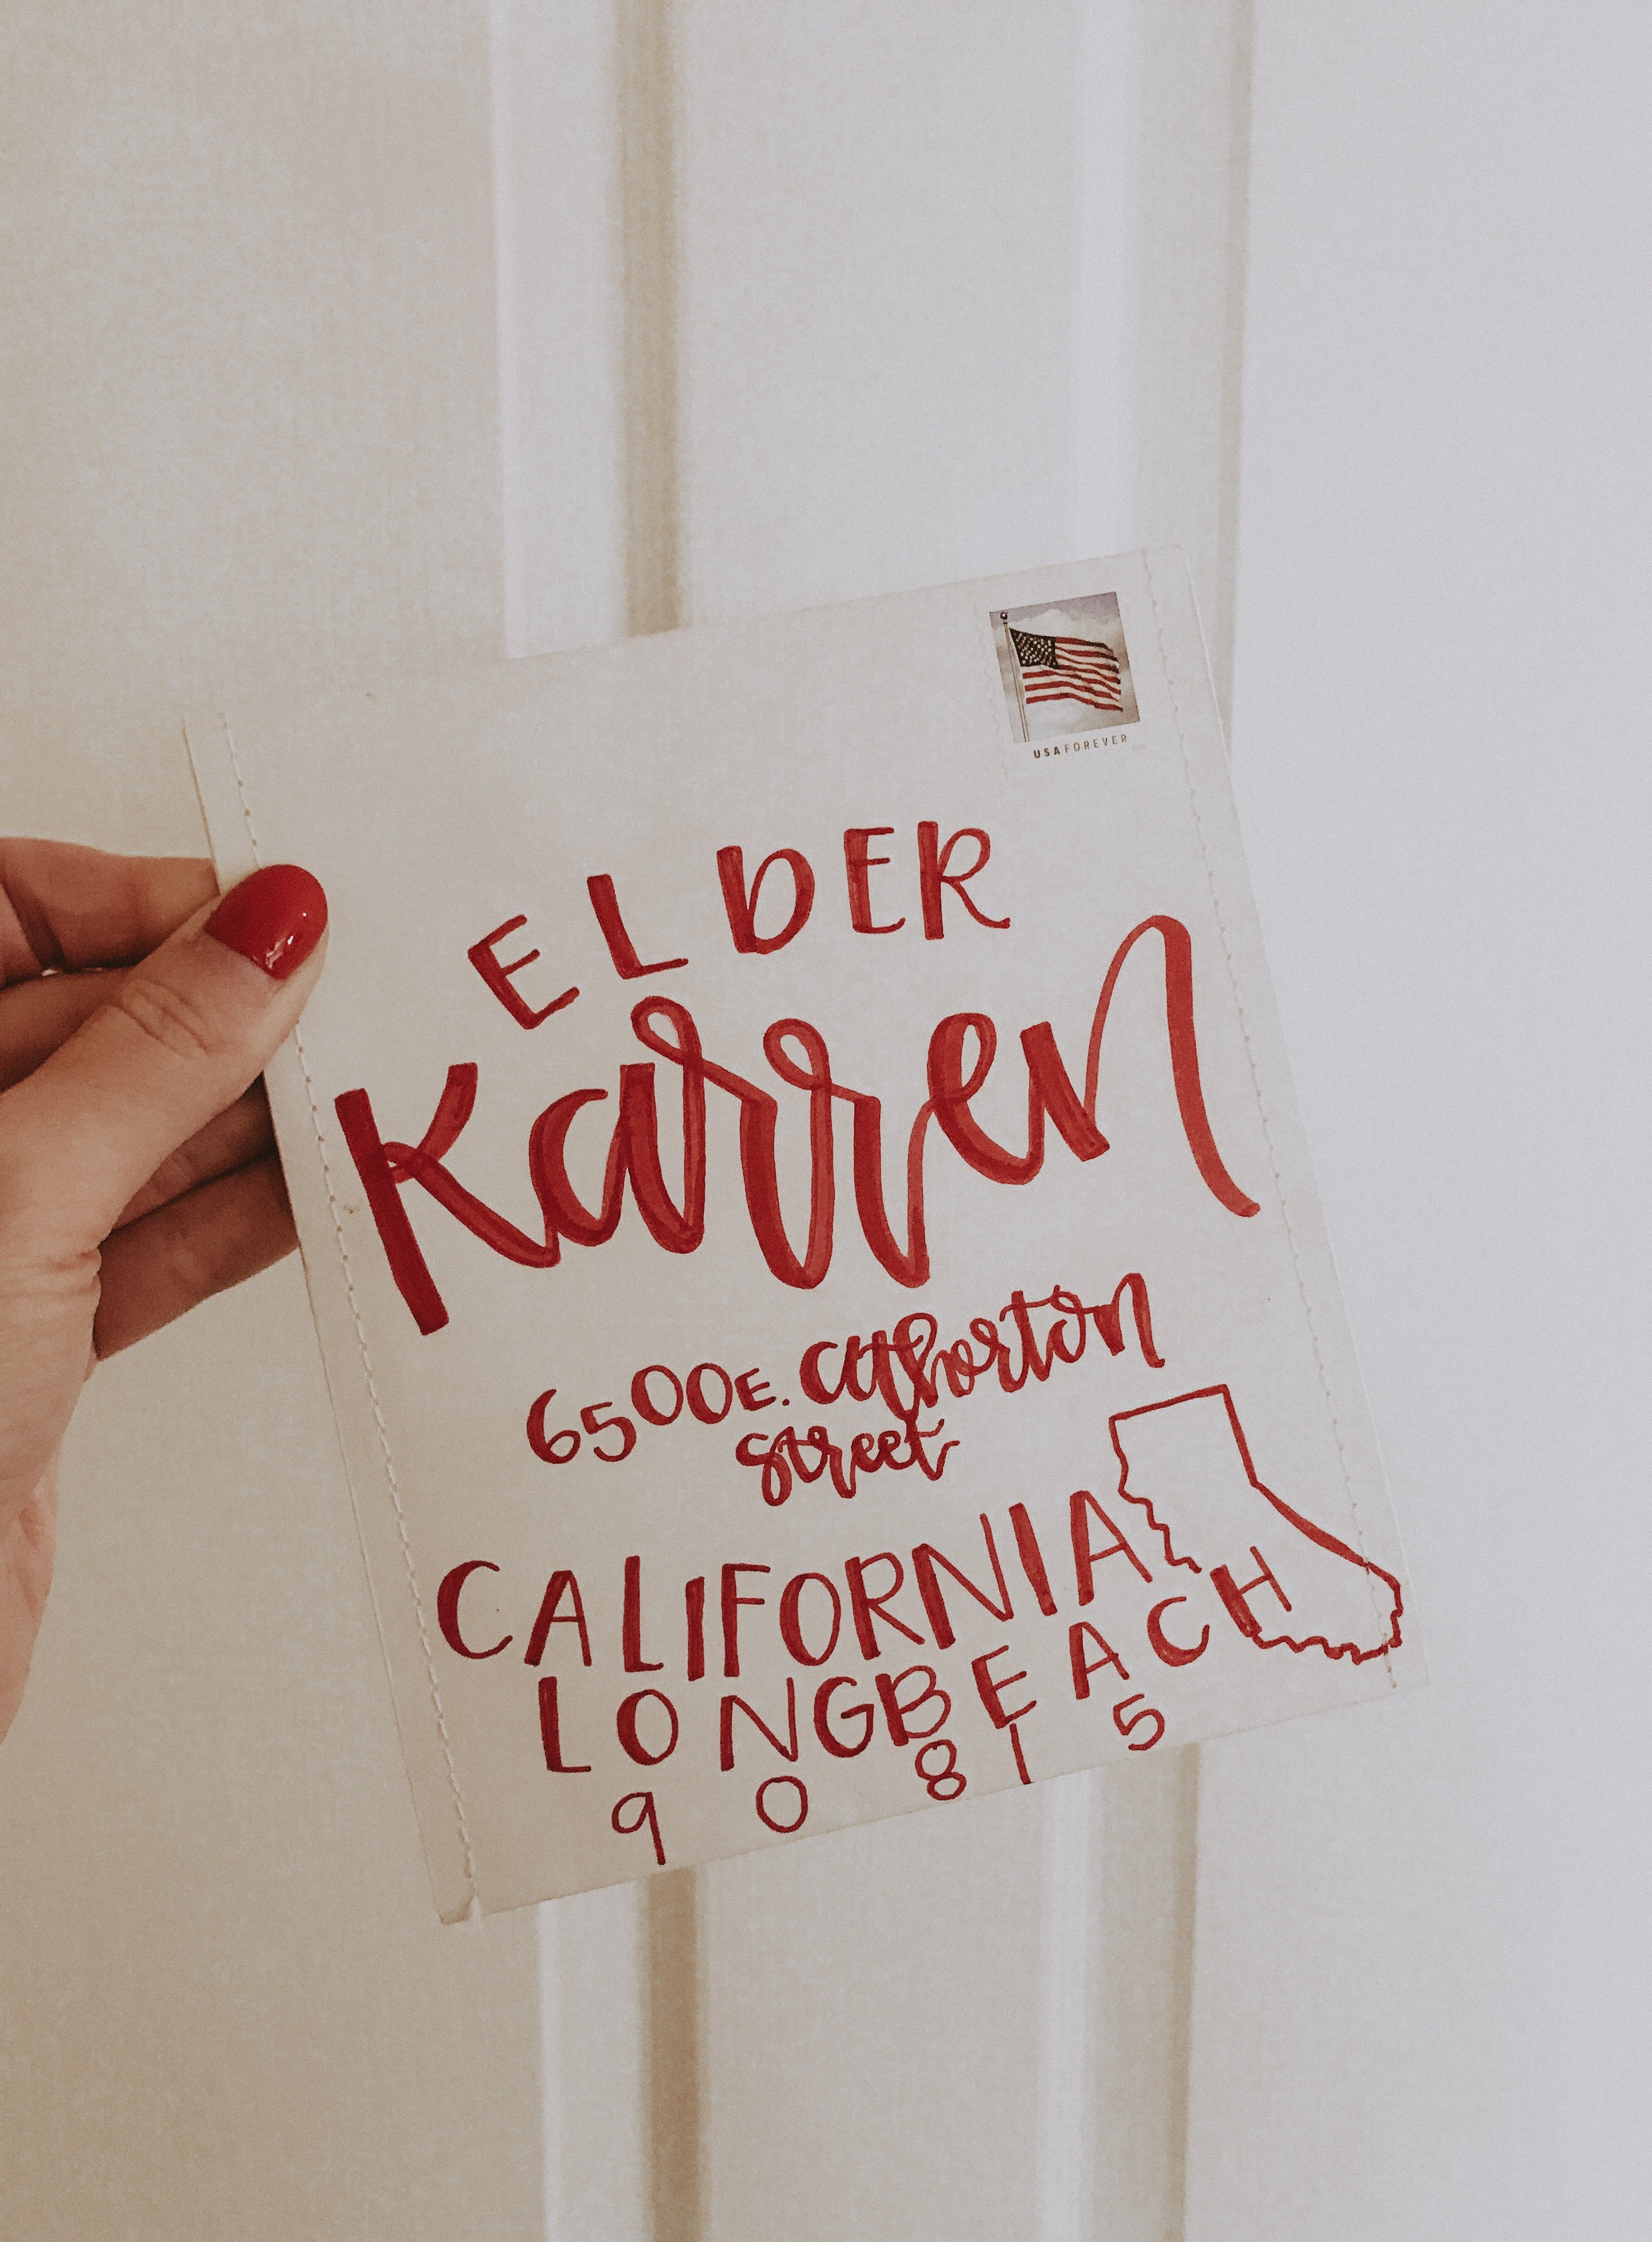 USA FOREVER
ELDER
Karren
6500 E. Atherton
Street
CALIFORNIA
LONGBEACH
90815